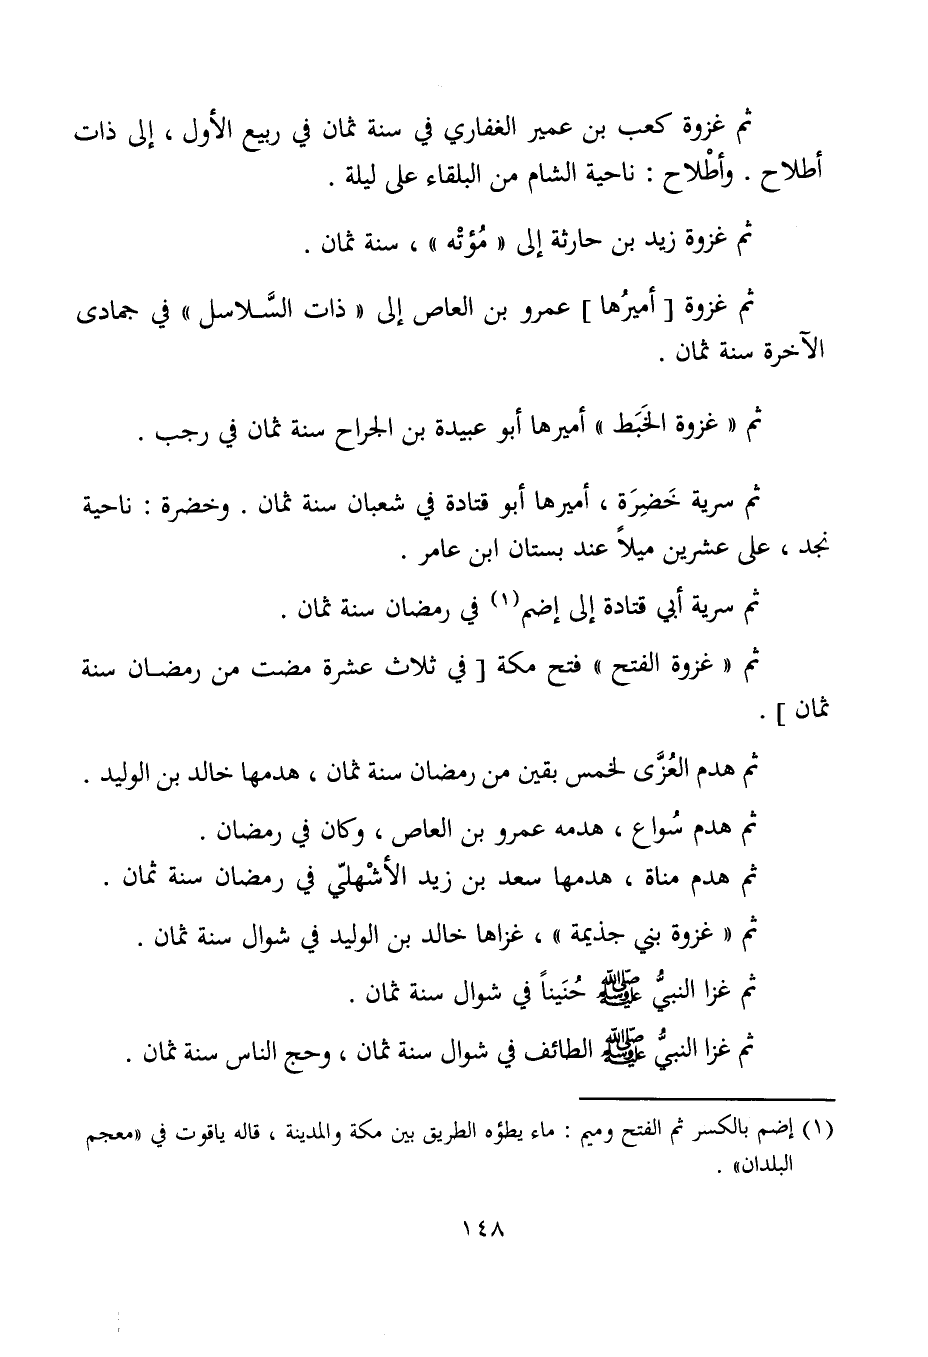 ثم غزوة كعب بن عمير الغفاري في سنة ثمان في ربيع الأول ، إلى ذات
أطلاح . وأطْلاح : ناحية الشام من البلقاء على ليلة .
ثم غزوة زيد بن حارثة إلى « مُؤتْه » ، سنة ثمان .
ثم غزوة [ أميرُها ] عمرو بن العاص إلى « ذات السَّلاسل » في جمادى
الآخرة سنة ثمان .
ثم « غزوة الخَبَط » أميرها أبو عبيدة بن الجراح سنة ثمان في رجب .
ثم سرية خَضِرَة ، أميرها أبو قتادة في شعبان سنة ثمان . وخضرة : ناحية
نجد ، على عشرين ميلاً عند بستان ابن عامر .
ثم سرية أبي قتادة إلى إضم(١) في رمضان سنة ثمان .
ثم « غزوة الفتح » فتح مكة [ في ثلاث عشرة مضت من رمضان سنة
ثمان ] .
ثم هدم العُزَّى لخمس بقين من رمضان سنة ثمان ، هدمها خالد بن الوليد .
ثم هدم سُواع ، هدمه عمرو بن العاص ، وكان في رمضان .
ثم هدم مناة ، هدمها سعد بن زيد الأشْهليّ في رمضان سنة ثمان .
ثم « غزوة بني جذيمة » ، غزاها خالد بن الوليد في شوال سنة ثمان .
ثم غزا النبيُّ ﷺ حُنَيناً في شوال سنة ثمان .
ثم غزا النبيُّ ﷺ الطائف في شوال سنة ثمان ، وحج الناس سنة ثمان .
(١) إضم بالكسر ثم الفتح وميم : ماء يطؤه الطريق بين مكة والمدينة ، قاله ياقوت في «معجم
البلدان» .
١٤٨